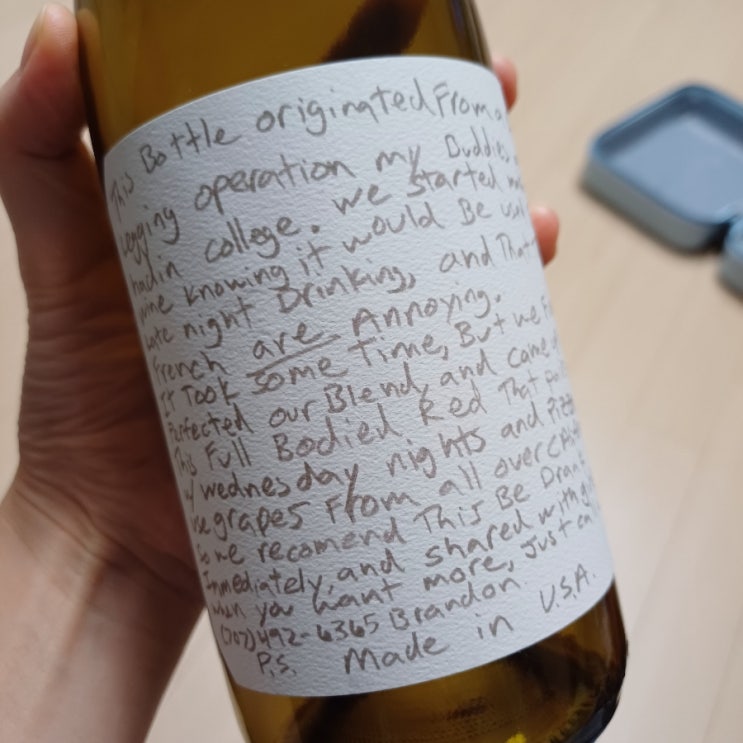 This Bottle originated From a
legging operation my Buddies
had in college. we started
wine knowing it would Be
Late night Drinking, and That
French are Annoying.
It Took some Time, But we
Perfected our Blend, and came
This Full Bodied Red That
w/ wednesday nights and
use grapes From all over
So we recomend This Be
Immediately, and shared with
when you want more, Just
(707) 492-6365 Brandon.
P.S. Made in U.S.A.